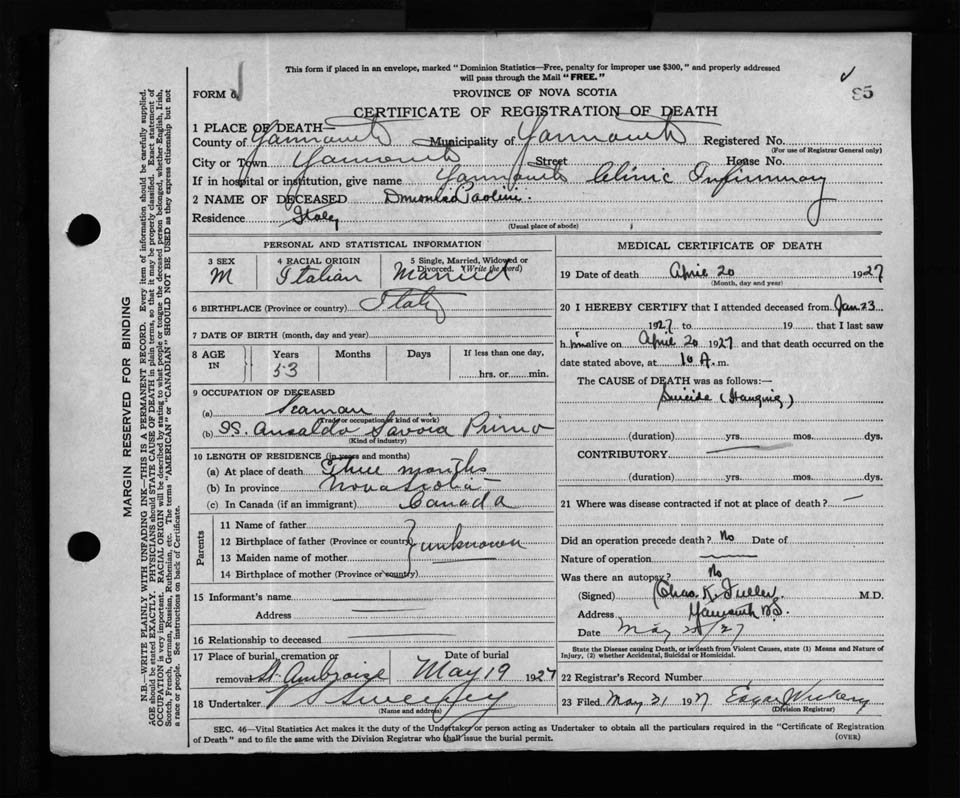 This form if placed in an envelope, marked " Dominion Statistics—Free, penalty for improper use $300," and properly addressed
will pass through the Mail "FREE."
FORM 6
PROVINCE OF NOVA SCOTIA
85
CERTIFICATE OF REGISTRATION OF DEATH
1 PLACE OF DEATH—
County of Yarmouth Municipality of Yarmouth Registered No.
(For use of Registrar General only)
City or Town Yarmouth Street House No.
If in hospital or institution, give name Yarmouth Clinic Infirmary
2 NAME OF DECEASED Paolini
Residence Italy
(Usual place of abode)
PERSONAL AND STATISTICAL INFORMATION
3 SEX M
4 RACIAL ORIGIN Italian
5 Single, Married, Widowed or Divorced. (Write the word) Married
6 BIRTHPLACE (Province or country) Italy
7 DATE OF BIRTH (month, day and year)
8 AGE IN Years Months Days If less than one day,
53 hrs. or min.
9 OCCUPATION OF DECEASED
(a) Seaman
(Trade or occupation or kind of work)
(b) SS. Ansaldo Savoia Primo
(Kind of industry)
10 LENGTH OF RESIDENCE (in years and months)
(a) At place of death Three months
(b) In province Nova Scotia
(c) In Canada (if an immigrant) Canada
Parents
11 Name of father
12 Birthplace of father (Province or country)
unknown
13 Maiden name of mother
14 Birthplace of mother (Province or country)
15 Informant's name
Address
16 Relationship to deceased
17 Place of burial, cremation or removal St. Ambroise
Date of burial May 19 1927
18 Undertaker V S Sweeney
(Name and address)
MEDICAL CERTIFICATE OF DEATH
19 Date of death April 20 1927
(Month, day and year)
20 I HEREBY CERTIFY that I attended deceased from Jan. 23
1927 to 19 that I last saw
h im alive on April 20 1927 and that death occurred on the
date stated above, at 10 A. m.
The CAUSE of DEATH was as follows:—
Suicide (Hanging)
(duration) yrs. mos. dys.
CONTRIBUTORY
(duration) yrs. mos. dys.
21 Where was disease contracted if not at place of death?
Did an operation precede death? No Date of
Nature of operation
Was there an autopsy? No
(Signed) Chas. K. Fuller M.D.
Address Yarmouth N.S.
Date May /27
State the Disease causing Death, or in death from Violent Causes, state (1) Means and Nature of
Injury, (2) whether Accidental, Suicidal or Homicidal.
22 Registrar's Record Number
23 Filed May 31 1927 Edgar
(Division Registrar)
SEC. 46—Vital Statistics Act makes it the duty of the Undertaker or person acting as Undertaker to obtain all the particulars required in the "Certificate of Registration
of Death" and to file the same with the Division Registrar who shall issue the burial permit.
(OVER)
MARGIN RESERVED FOR BINDING
N.B.—WRITE PLAINLY WITH UNFADING INK—THIS IS A PERMANENT RECORD. Every item of information should be carefully supplied.
AGE should be stated EXACTLY. PHYSICIANS should STATE CAUSE OF DEATH in plain terms, so that it may be properly classified. Exact statement of
OCCUPATION is very important. RACIAL ORIGIN will be described by stating to what people or tongue the deceased person belonged, whether English, Irish,
Scotch, French, German, Russian, Ruthenian, etc. The terms "AMERICAN" or "CANADIAN" SHOULD NOT BE USED as they express citizenship but not
a race or people. See instructions on back of Certificate.